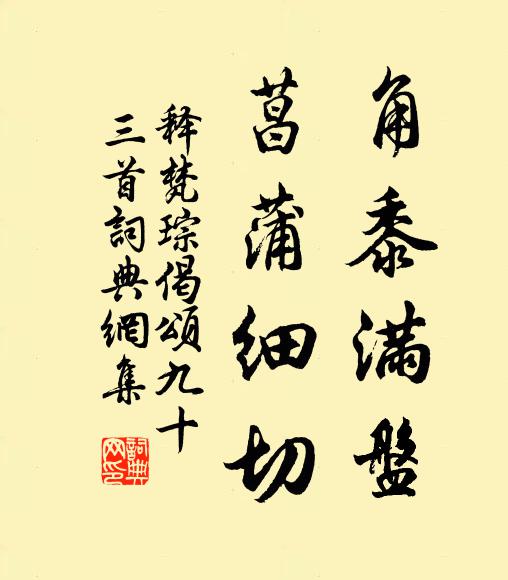 角黍满盤
菖蒲细切
释梵琮偈頌九十
三首詞典網集
詞典網印